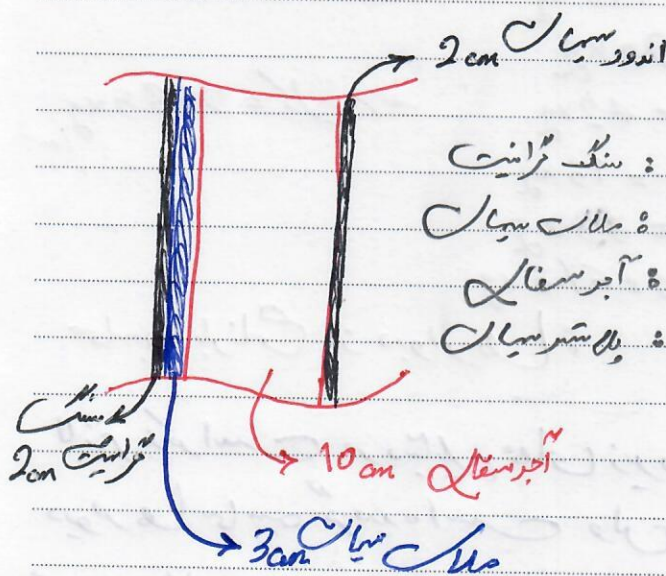 اندود سیمان 2cm
: سنگ گرانیت
: ملات سیمان
: آجر سفال
: پلاستر سیمان
سنگ
گرانیت 2cm
آجر سفال 10cm
ملات سیمان 3cm